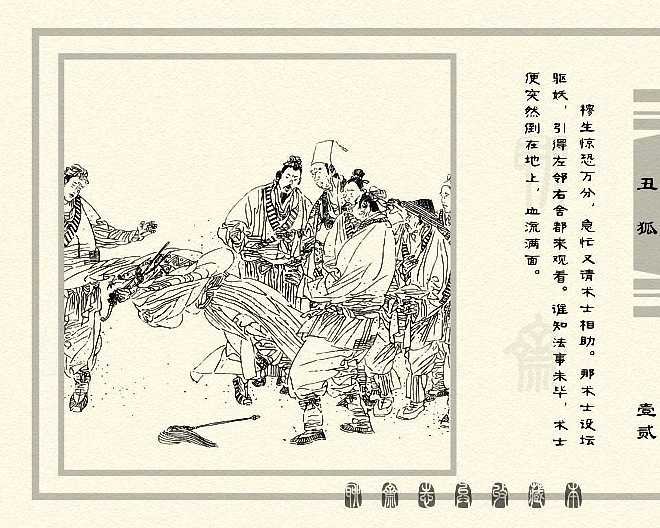 穆生惊恐万分，急忙又请术士相助。那术士设坛
驱妖，引得左邻右舍都来观看。谁知法事未毕，术士
便突然倒在地上，血流满面。
丑狐
壹贰